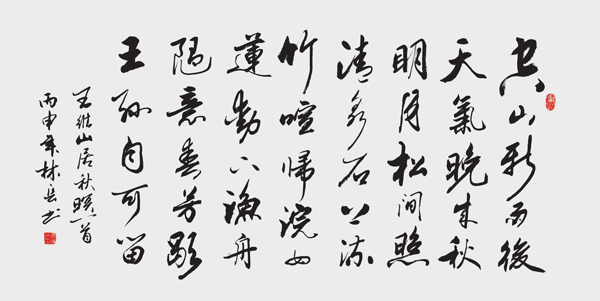 空山新雨後
天氣晚来秋
明月松間照
清泉石上流
竹喧歸浣女
蓮動下漁舟
随意春芳歇
王孫自可留
王維山居秋暝一首
丙申年林岳书